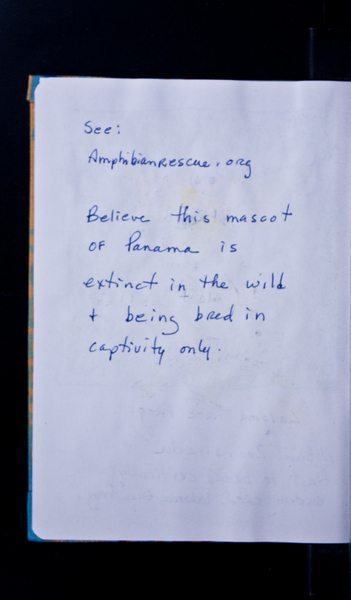 See:
Amphibianrescue.org
Believe this mascot
of Panama is
extinct in the wild
+ being bred in
captivity only.